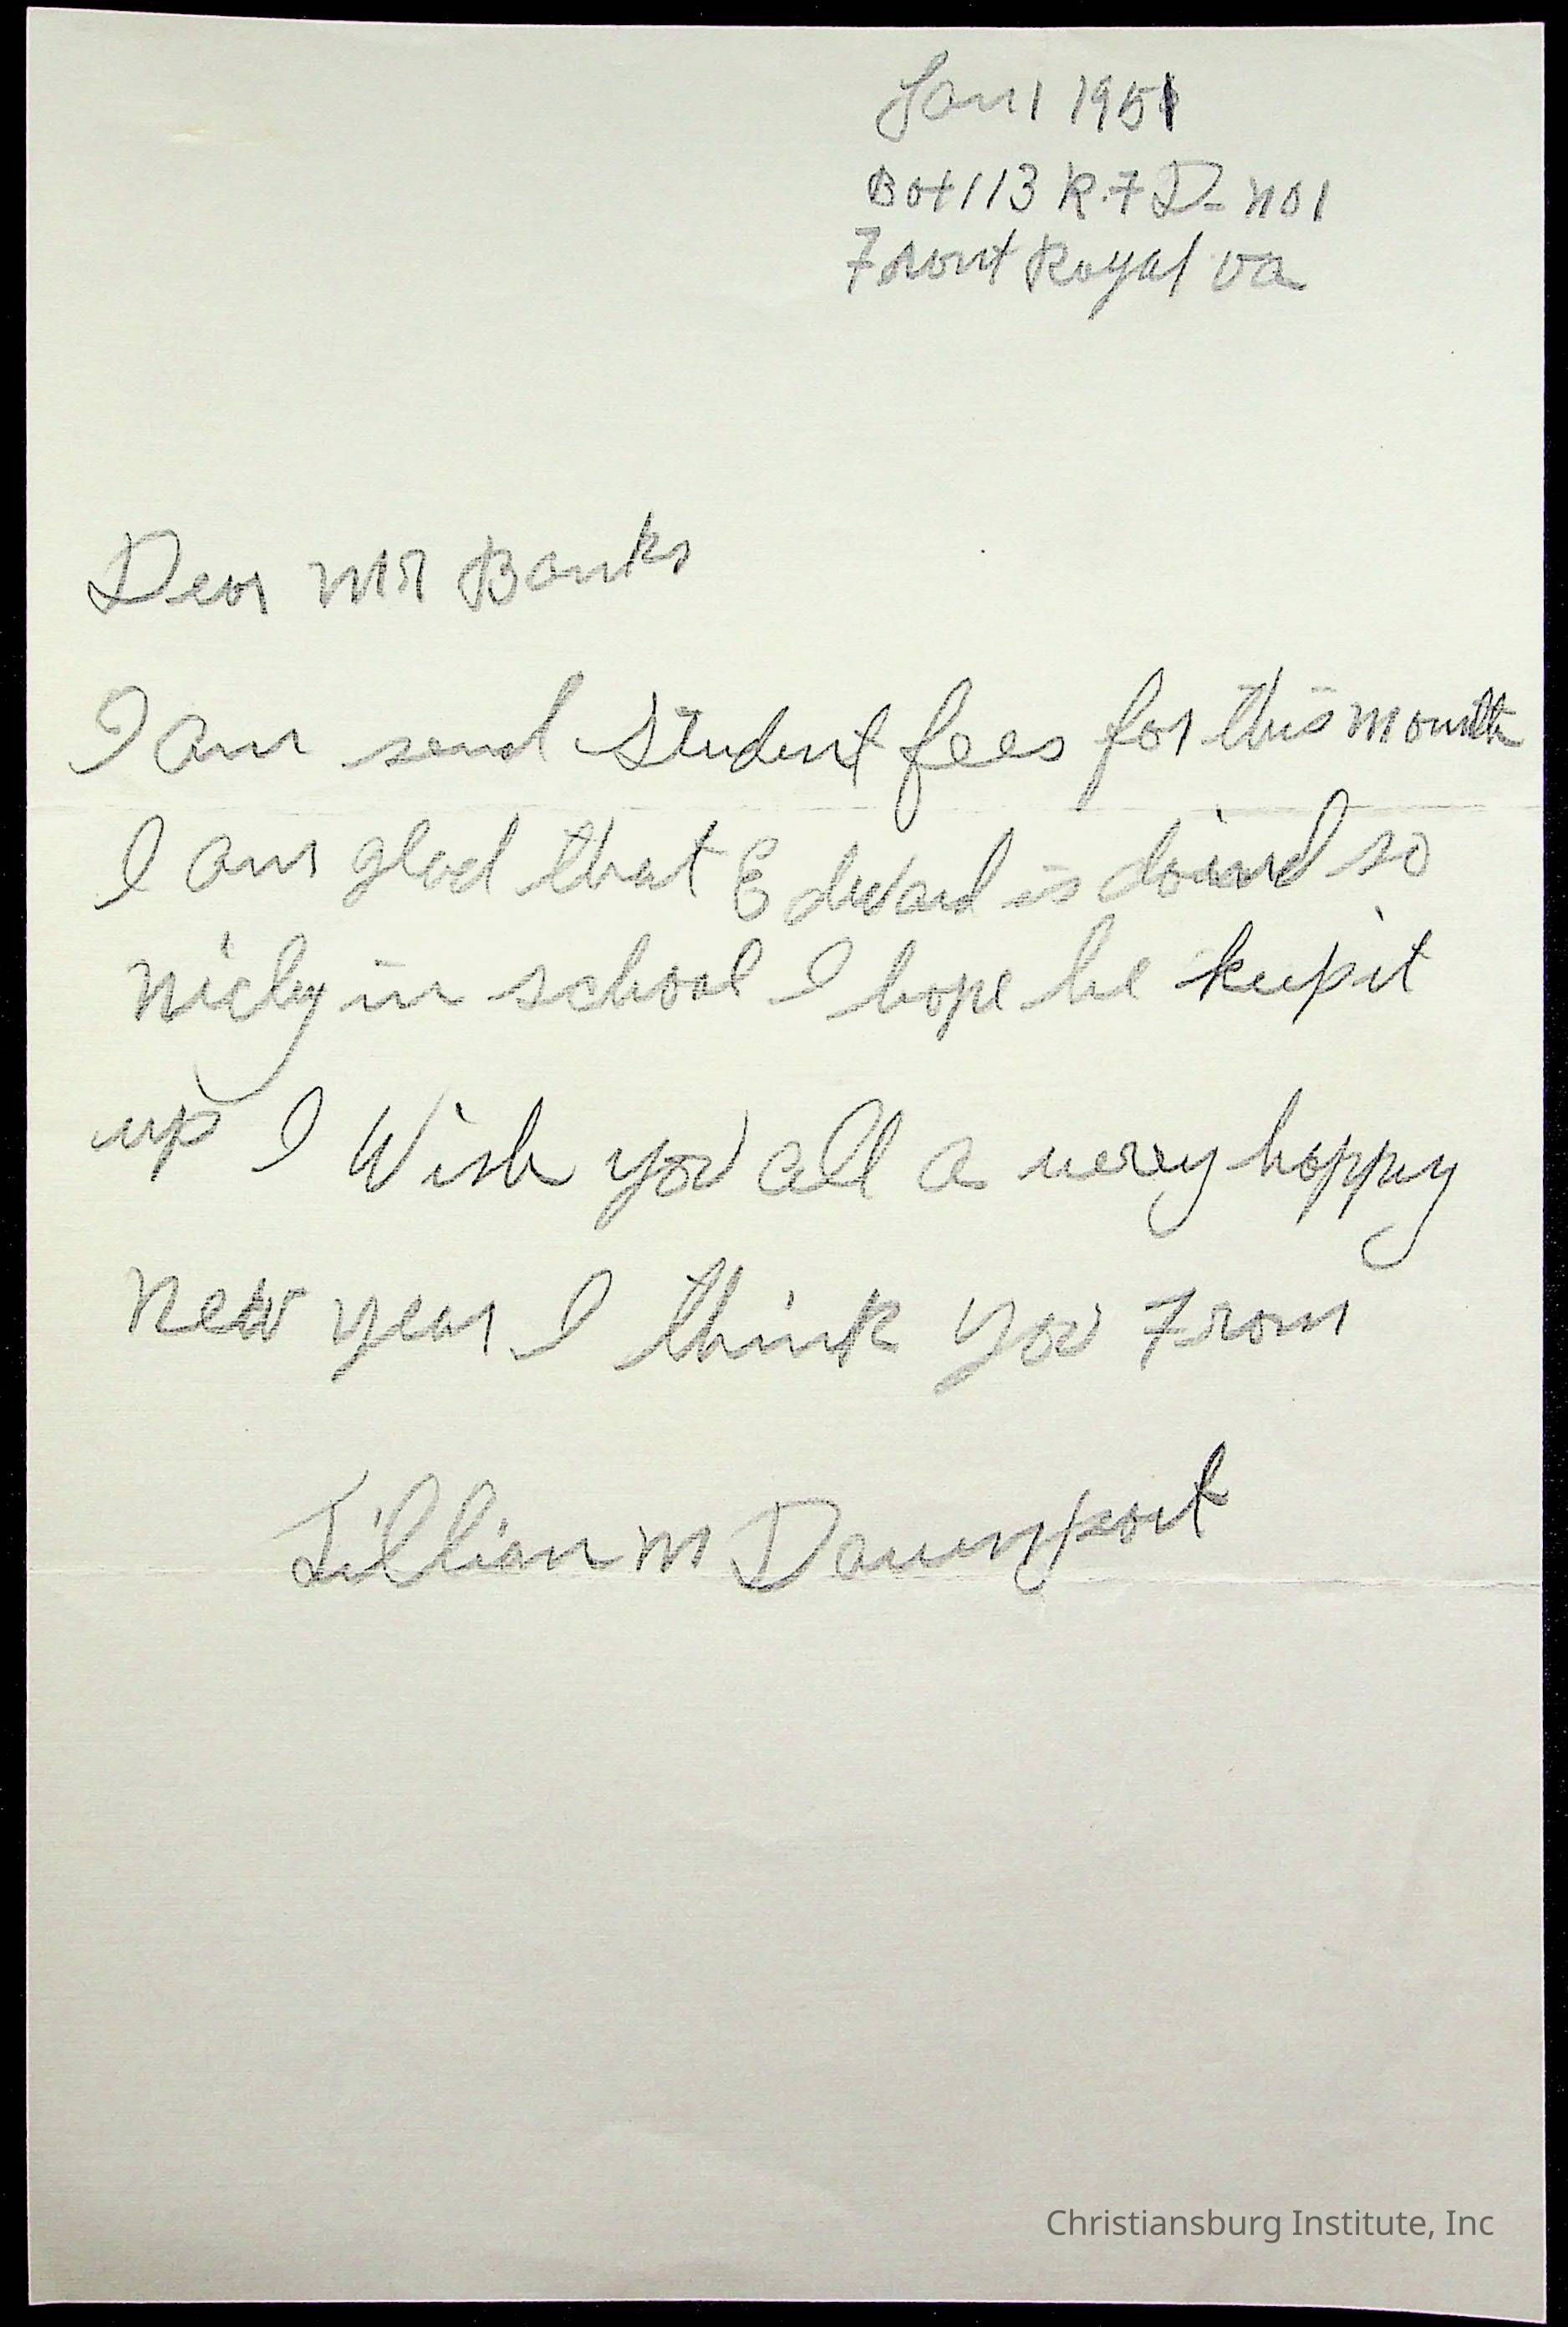 Jan 1 1951
Box 113 R.F.D- no 1
Front Royal va
Dear Mr Banks
I am send Student fees for this month
I am glad that Edward is doind so
nicly in school I hope he keep it
up I Wish you all a verey happy
new year I think you From
Lillian M Davenport
Christiansburg Institute, Inc